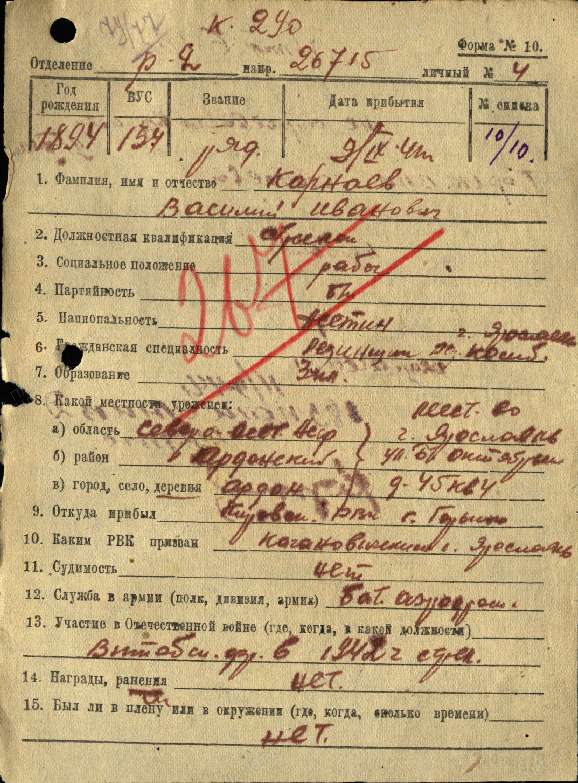 к. 290
Форма № 10.
Отделение р-2 напр. 26715 личный № 4
Год рождения ВУС Звание Дата прибытия № списка
1894 134 ряд. 10/10.
1. Фамилия, имя и отчество Карнаев
Василий Иванович
2. Должностная квалификация
3. Социальное положение рабы
4. Партийность бп
5. Национальность осетин г. Ярославль
6. Гражданская специальность
7. Образование 3 кл.
8. Какой местности уроженец: мест. во
а) область Северо-Осет. г. Ярославль
б) район Ардонский ул. октября
в) город, село, деревня Ардон д-45 кв 4
9. Откуда прибыл
10. Каким РВК призван Кагановическим г. Ярославль
11. Судимость нет
12. Служба в армии (полк, дивизия, армия) Бат. аэродром.
13. Участие в Отечественной войне (где, когда, в какой должности)
в 1942 г стрел.
14. Награды, ранения нет.
15. Был ли в плену или в окружении (где, когда, сколько времени)
нет.
267